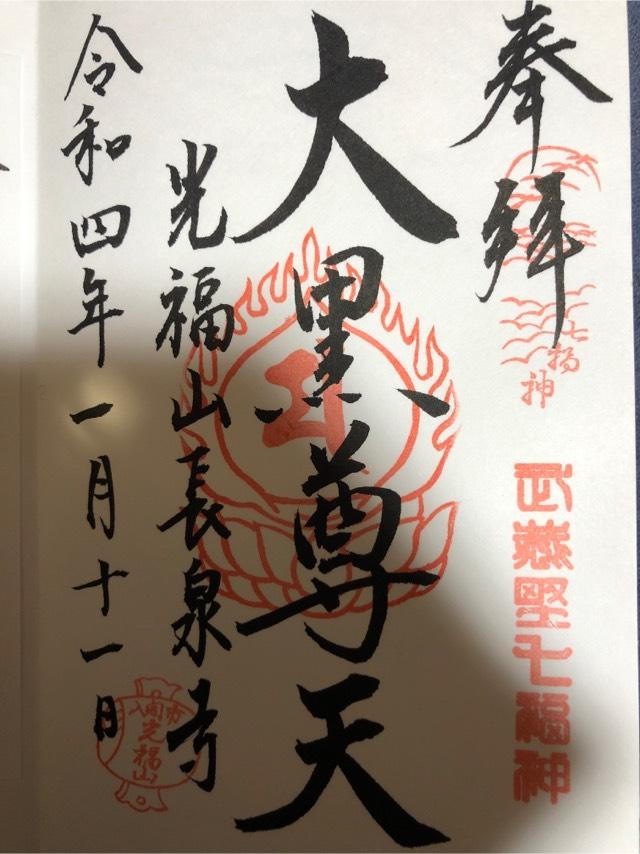 奉拝
七福神
武蔵野七福神
大黒尊天
光福山長泉寺
令和四年一月十一日
入間市
光福山